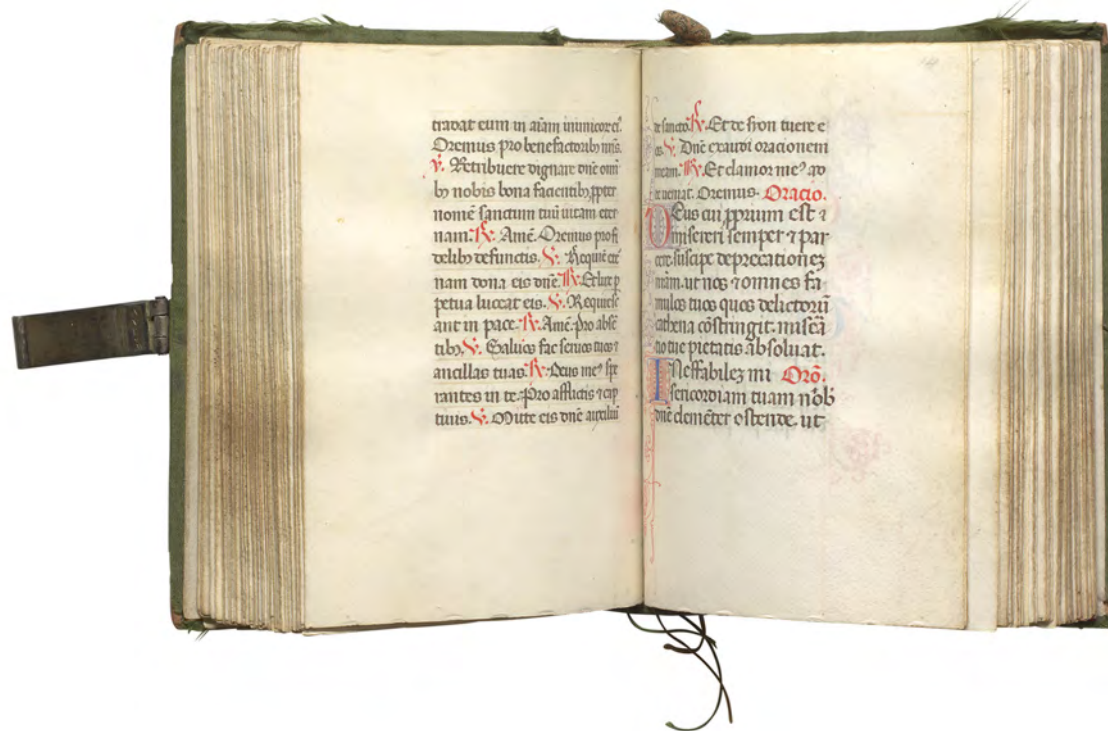 tradat eum in aīam inimicor eiꝰ.
Oremus pro benefactoribꝫ nr̄is.
℣. Retribuere dignare dn̄e omī
bꝫ nobis bona facientibꝫ ꝓpter
nomē sanctum tuū uitam eter
nam. ℟. Amē. Oremus pro fi
delibꝫ defunctis. ℣. Requiē eter
nam dona eis dn̄e. ℟. Et lux ꝑ
petua luceat eis. ℣. Requiesc
ant in pace. ℟. Amē. Pro absē
tibꝫ. ℣. Saluos fac seruos tuos ⁊
ancillas tuas. ℟. Deus meꝰ spe
rantes in te. Pro afflictis ⁊ cap
tiuis. ℣. Mitte eis dn̄e auxiliū
de sancto. ℟. Et de syon tuere e
os. ℣. Dn̄e exaudi orationem
meam. ℟. Et clamor meꝰ ad
te ueniat. Oremus. Oracio.
Deus cui ꝓprium est ⁊
misereri semper ⁊ par
cere. suscipe deprecationeꝫ
nr̄am. ut nos ⁊ omnes fa
mulos tuos quos delictorū
cathena cōstringit. miserā
tio tue pietatis absoluat.
Ineffabileꝫ mi Orō.
sericordiam tuam nob̄
dn̄e clemēter ostende. ut